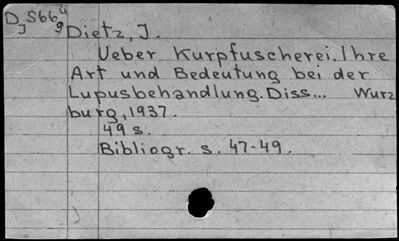 D S66 4
J 9
Dietz, J.
Ueber Kurpfuscherei. Ihre
Art und Bedeutung bei der
Lupusbehandlung. Diss... Wurz
burg, 1937.
49 s.
Bibliogr. s. 47-49.